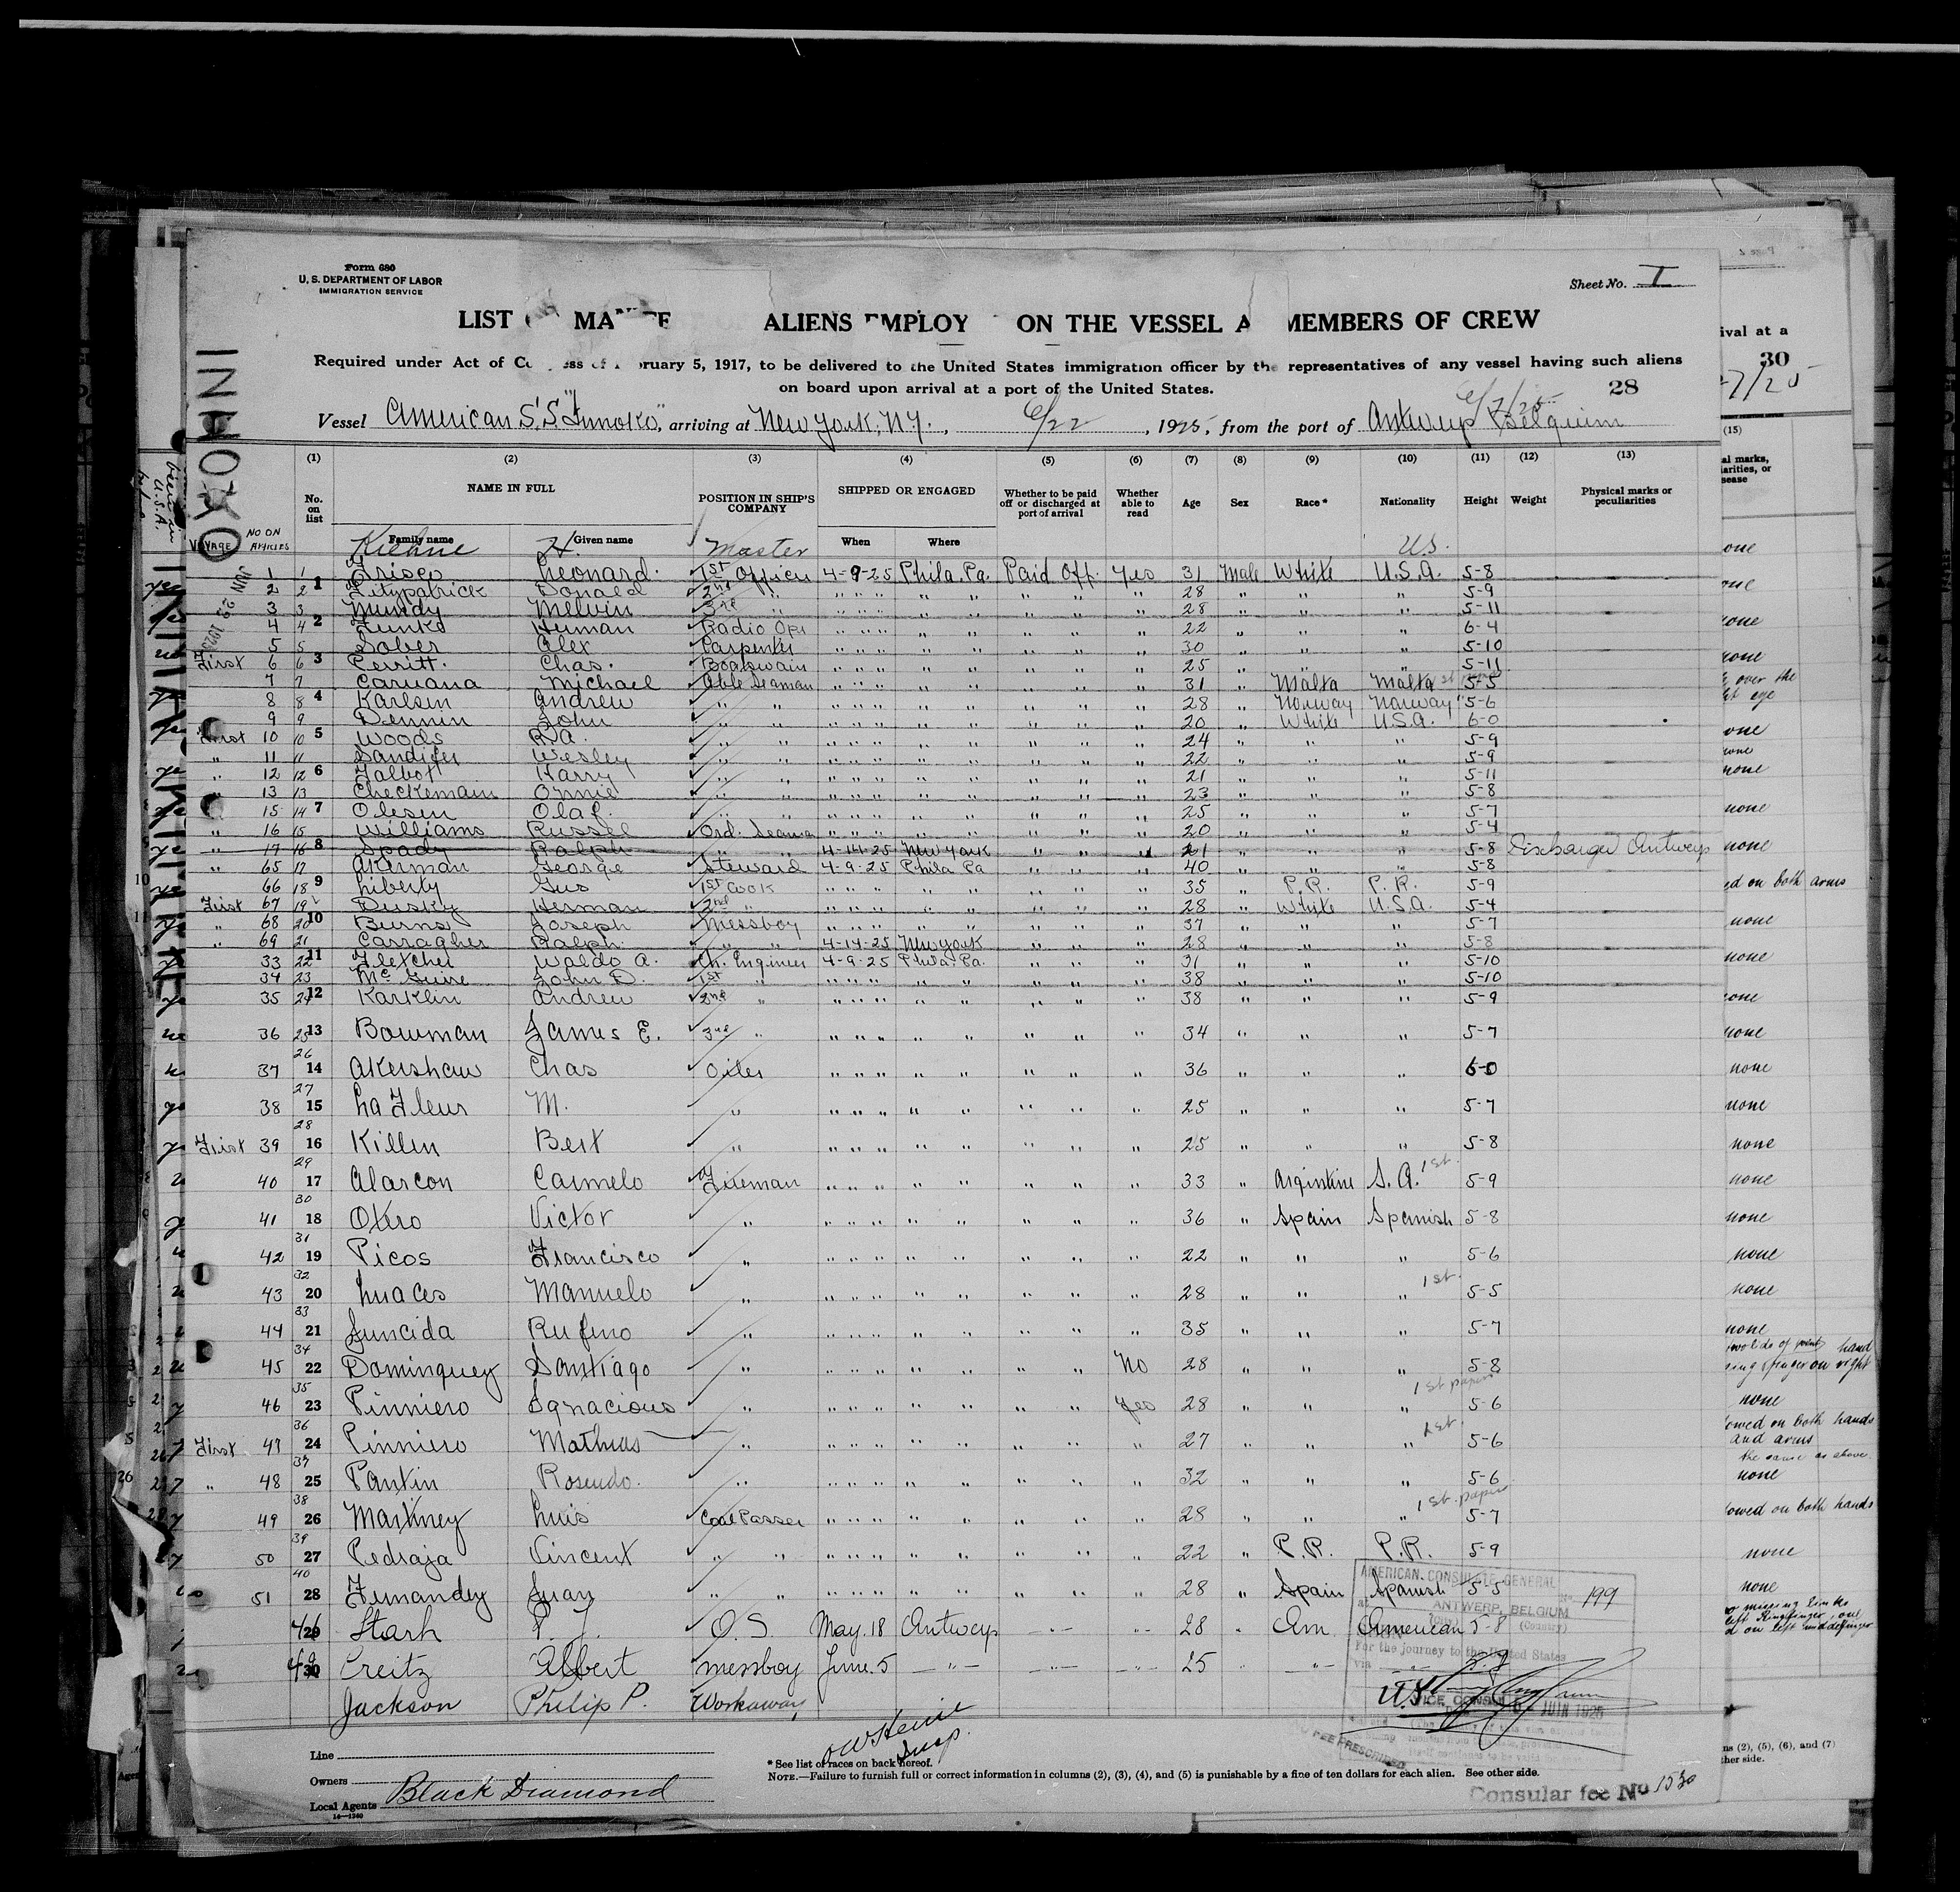 Form 680
U. S. DEPARTMENT OF LABOR
IMMIGRATION SERVICE
Sheet No. I
LIST ALIENS ON THE VESSEL MEMBERS OF CREW
Required under Act of 5, 1917, to be delivered to the United States immigration officer by the representatives of any vessel having such aliens
on board upon arrival at a port of the United States.
28
Vessel American S.S. "Innoko", arriving at New York, N.Y., 6/22, 1925, from the port of Antwerp Belgium
INHOKO
(1) (2) (3) (4) (5) (6) (7) (8) (9) (10) (11) (12) (13)
No. on list NAME IN FULL POSITION IN SHIP'S COMPANY SHIPPED OR ENGAGED Whether to be paid off or discharged at port of arrival Whether able to read Age Sex Race* Nationality Height Weight Physical marks or peculiarities
VOYAGE NO ON ARTICLES Family name Given name When Where
Kiehne H. Master U.S.
1 1 Frisco Leonard. 1st Officer 4-9-25 Phila. Pa. Paid Off. Yes 31 Male White U.S.A. 5-8
2 2 1 Fitzpatrick Donald 2nd " " " " " " " " " 28 " " " 5-9
3 3 Mundy Melvin 3rd " " " " " " " " " 28 " " " 5-11
4 4 2 Funks Human Radio Opr " " " " " " " " 22 " " " 6-4
5 5 Sober Alex Carpenter " " " " " " " " 30 " " " 5-10
First 6 6 3 Perritt. Chas. Boatswain " " " " " " " " 25 " " " 5-11
7 7 Caruana Michael Able Seaman " " " " " " " " 31 " Malta Malta 5-5
8 8 4 Karlsen Andrew " " " " " " " " " " 28 " Norway Norway 5-6
9 9 Dennin John " " " " " " " " " " 20 " White U.S.A. 6-0
First 10 10 5 Woods R.A. " " " " " " " " " " 24 " " " 5-9
" 11 11 Sandifer Wesley " " " " " " " " " " 22 " " " 5-9
" 12 12 6 Talbot Harry " " " " " " " " " " 21 " " " 5-11
" 13 13 Checkemain Ornie " " " " " " " " " " 23 " " " 5-8
15 14 7 Olesen Olaf. " " " " " " " " " " 25 " " " 5-7
" 16 15 Williams Russel Ord. Seaman " " " " " " " " 20 " " " 5-4
" 17 16 8 Spady Ralph " " 4-14-25 New York " " " 21 " " " 5-8 Discharged Antwerp
" 65 17 Akerman George Steward 4-9-25 Phila Pa " " " 40 " " " 5-8
66 18 9 Liberty Gus 1st Cook " " " " " " " " 35 " P.R. P.R. 5-9
First 67 19 Dusky Herman 2nd " " " " " " " " " 28 " White U.S.A. 5-4
" 68 20 10 Burns Joseph Messboy " " " " " " " " 37 " " " 5-7
" 69 21 Carragher Ralph " " 4-14-25 New York " " " 28 " " " 5-8
33 22 11 Fletcher Waldo A. Ch. Engineer 4-9-25 Phila. Pa. " " " 31 " " " 5-10
34 23 McGuire John D. 1st " " " " " " " " " 38 " " " 5-10
35 24 12 Karklin Andrew 2nd " " " " " " " " " 38 " " " 5-9
36 25 13 Bowman James E. 3rd " " " " " " " " " 34 " " " 5-7
37 26 14 Akershaw Chas Oiler " " " " " " " " 36 " " " 6-0
38 27 15 La Fleur M. " " " " " " " " " 25 " " " 5-7
First 39 28 16 Killen Bert " " " " " " " " " 25 " " " 5-8
40 29 17 Alarcon Carmelo Fireman " " " " " " " " 33 " Argintine S.A. 1st. 5-9
41 30 18 Otero Victor " " " " " " " " " 36 " Spain Spanish 5-8
42 31 19 Picos Francisco " " " " " " " " " 22 " " " 5-6
43 32 20 Luaces Manuelo " " " " " " " " " 28 " " " 1st. 5-5
44 33 21 Juncida Rufino " " " " " " " " " 35 " " " 5-7
45 34 22 Dominquez Santiago " " " " " " " " No 28 " " " 5-8
46 35 23 Pinniero Ignacious " " " " " " " " Yes 28 " " " 1st papers 5-6
First 47 36 24 Pinniero Mathias " " " " " " " " " 27 " " " 1st. 5-6
" 48 37 25 Pantin Rosendo. " " " " " " " " " 32 " " " 5-6
49 38 26 Martinez Luis Coal Passer " " " " " " " " 28 " " " 1st. paper 5-7
50 39 27 Pedraja Vincent " " " " " " " " " " 22 " P.R. P.R. 5-9
51 40 28 Fernandez Juan " " " " " " " " " " 28 " Spain Spanish 5-5
29 Stark P. J. O.S. May. 18 Antwerp " " " 28 " Am. American 5-8
30 Creitz Albert messboy June. 5 " " " " 25 " "
Jackson Philip P. Workaway
AMERICAN CONSULATE GENERAL
ANTWERP, BELGIUM No. 199
(City) (Country)
For the journey to the United States
via
VICE CONSUL
JUIN 1925
FEE PRESCRIBED
Line
Owners
Local Agents Black Diamond
14—1240
* See list of races on back hereof.
NOTE.—Failure to furnish full or correct information in columns (2), (3), (4), and (5) is punishable by a fine of ten dollars for each alien. See other side.
Consular fee No 1530
ival at a
30
(15)
none
none
none
none
over the
eye
none
none
none
none
none
on both arms
none
none
none
none
none
none
none
none
none
none
none
none
none
on both hands
and arms
the same as above
none
on both hands
none
none
(2), (5), (6), and (7)
other side.